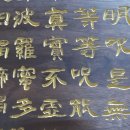 明呪是無
等等呪能
真實不虛
波羅蜜多